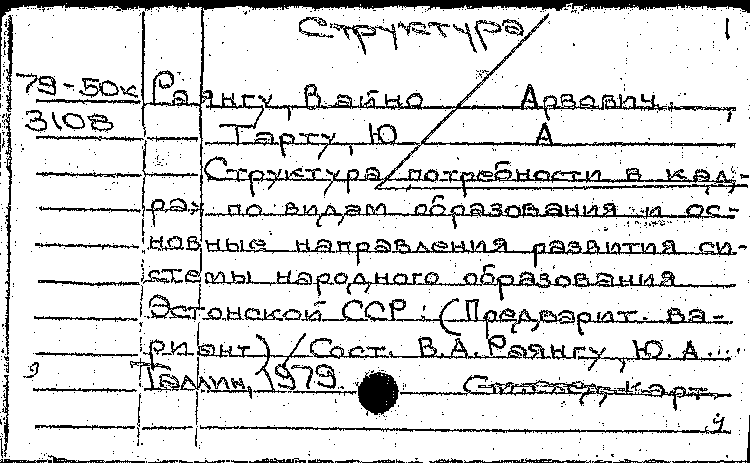 Структура 1
79-50к Раянгу, Вайно Арвович,
3108 Тарту, Ю А
Структура потребности в кад-
рах по видам образования и ос-
новные направления развития си-
стемы народного образования
Эстонской ССР : (Предварит. ва-
риант) / Сост. В.А. Раянгу, Ю. А...
Таллин, 1979. карт.